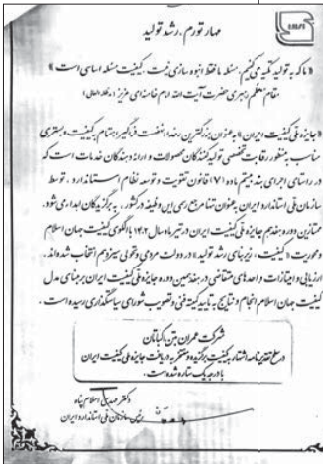 مهار تورم، رشد تولید
« ما که به تولید تکیه می‌کنیم، مسئله ما فقط انبوه سازی نیست، کیفیت مسئله اساسی است »
مقام معظم رهبری حضرت آیت الله امام خامنه‌ای عزیز
« جایزه ملی کیفیت ایران » به عنوان بزرگترین رخداد نهضت فراگیر اهتمام به کیفیت، و بستری
مناسب به منظور رقابت تخصصی تولیدکنندگان محصولات و ارائه دهندگان خدمات است که
در راستای اجرای بند بیستم ماده (۷) قانون تقویت و توسعه نظام استاندارد، توسط
سازمان ملی استاندارد ایران به عنوان تنها مرجع رسمی این وظیفه در کشور، به برگزیدگان اهدا می‌شود.
ممتازین دوره هفدهم جایزه ملی کیفیت ایران در تیر ماه سال ۱۴۰۲ با الگوی کیفیت جهان اسلام
و محوریت « کیفیت، زیربنای رشد تولید » در دولت مردمی و تحولی سیزدهم انتخاب شده‌اند.
ارزیابی و امتیازات واحدهای متقاضی در هفدهمین دوره جایزه ملی کیفیت ایران بر مبنای مدل
کیفیت جهان اسلام انجام و نتایج به تایید کمیته فنی و تصویب شورای سیاستگذاری رسیده است.
شرکت عمران بتن اکباتان
در سطح تقدیرنامه اشتهار به کیفیت برگزیده و مفتخر به دریافت جایزه ملی کیفیت ایران
با درجه یک ستاره شده است.
دکتر مهدی اسلام پناه
رئیس سازمان ملی استاندارد ایران